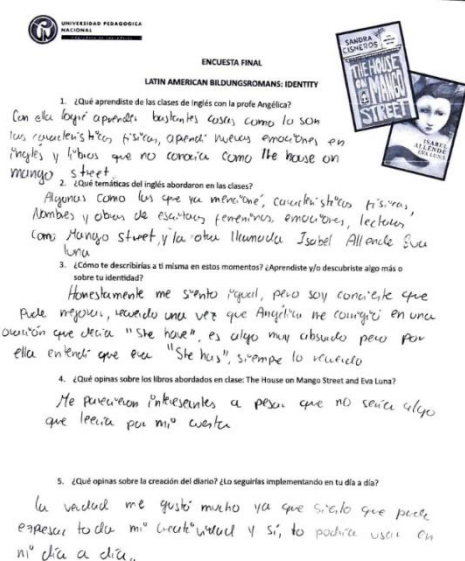 UNIVERSIDAD PEDAGOGICA
NACIONAL
ENCUESTA FINAL
LATIN AMERICAN BILDUNGSROMANS: IDENTITY
SANDRA
CISNEROS
THE HOUSE
ON MANGO
STREET
ISABEL
ALLENDE
EVA LUNA
1. ¿Qué aprendiste de las clases de inglés con la profe Angélica?
Con ella logré aprender bastantes cosas como lo son
las características físicas, aprendí nuevas emociones en
inglés y libros que no conocía como the house on
mango street
2. ¿Qué temáticas del inglés abordaron en las clases?
Algunas como las que ya mencioné, características físicas,
Nombres y obras de escritoras femeninas, emociones, lecturas
como Mango street, y la otra llamada Isabel Allende Eva
luna
3. ¿Cómo te describirías a ti misma en estos momentos? ¿Aprendiste y/o descubriste algo más o
sobre tu identidad?
Honestamente me siento igual, pero soy conciente que
Pude mejorar, recuerdo una vez que Angélica me corrigió en una
oración que decía "She have", es algo muy absurdo pero por
ella entendí que era "She has", siempre lo recuerdo
4. ¿Qué opinas sobre los libros abordados en clase: The House on Mango Street and Eva Luna?
Me parecieron interesantes a pesar que no sería algo
que leería por mi cuenta
5. ¿Qué opinas sobre la creación del diario? ¿Lo seguirías implementando en tu día a día?
la verdad me gustó mucho ya que siento que pude
expresar toda mi creatividad y sí, lo podría usar en
mi día a día..